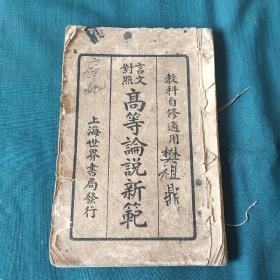 教科自修適用
樊祖鼎
言文對照
高等論說新範
上海世界書局發行